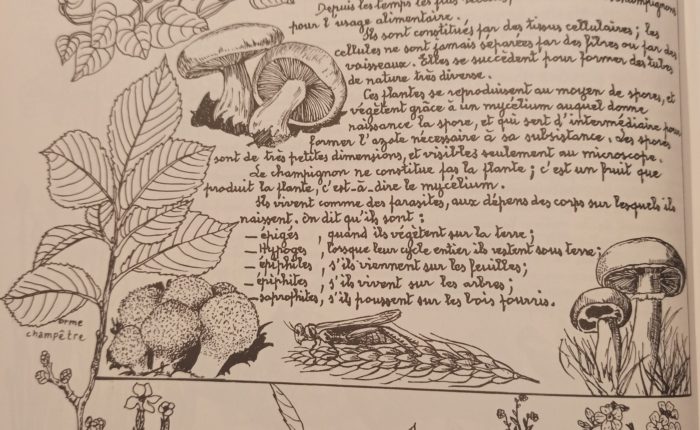 Depuis les temps les plus
champignons
pour l'usage alimentaire.
Ils sont constitués par des tissus cellulaires ; les
cellules ne sont jamais séparées par des fibres ou par des
vaisseaux. Elles se succèdent pour former des tubes
de nature très diverse.
Ces plantes se reproduisent au moyen de spores, et
végètent grâce à un mycélium auquel donne
naissance la spore, et qui sert d'intermédiaire pour
former l'azote nécessaire à sa subsistance. Les spores
sont de très petites dimensions, et visibles seulement au microscope.
Le champignon ne constitue pas la plante ; c'est un fruit que
produit la plante, c'est-à-dire le mycélium.
Ils vivent comme des parasites, aux dépens des corps sur lesquels ils
naissent. On dit qu'ils sont :
_ épigés , quand ils végètent sur la terre ;
_ Hypogés , lorsque leur cycle entier ils restent sous terre ;
_ épiphites , s'ils viennent sur les feuilles ;
_ épiphites , s'ils vivent sur les arbres ;
_ saprophites , s'ils poussent sur les bois pourris.
orme
champêtre